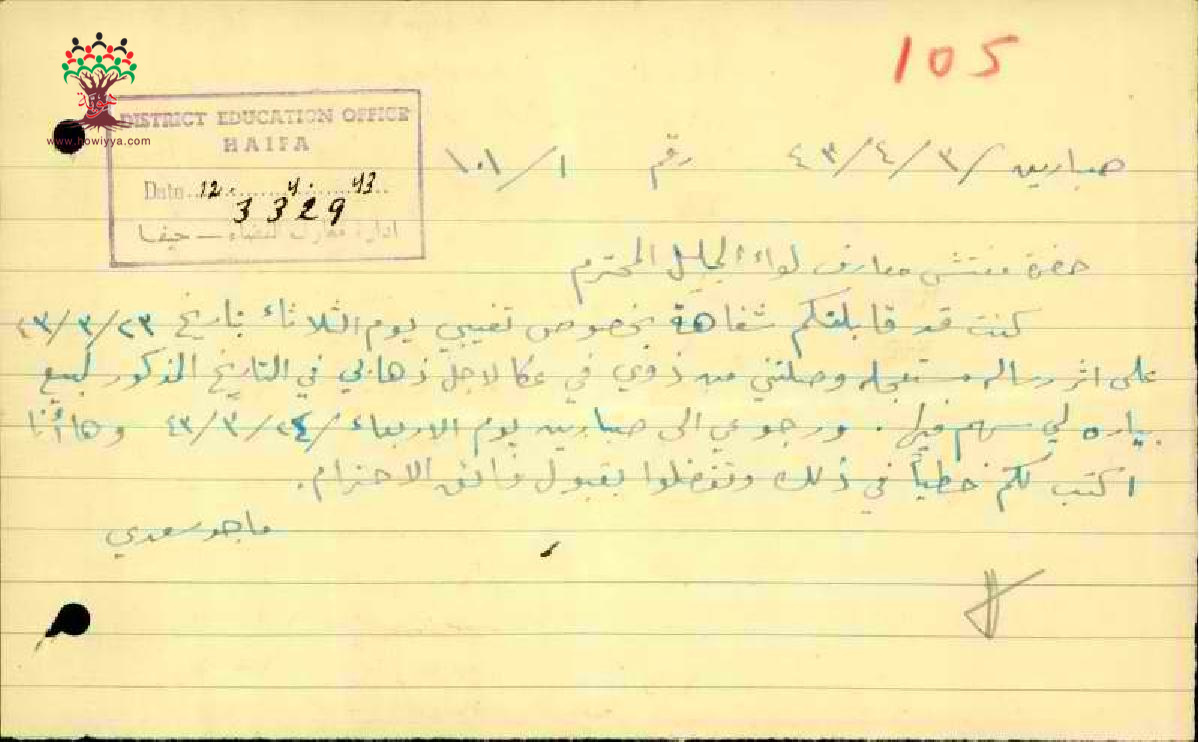 105
هوية
www.howiyya.com
DISTRICT EDUCATION OFFICE
HAIFA
Date 12. 4. 43
3329
ادارة معارف لقضاء — حيفا
صبارين ٤٣/٤/٣ رقم ١٠١/١
حضرة مفتش معارف لواء الجليل المحترم
كنت قد قابلتكم شفاهة بخصوص تغيبي يوم الثلاثاء بتاريخ ٤٣/٣/٢٣
على اثر رساله مستعجله وصلتني من ذوي في عكا لاجل ذهابي في التاريخ المذكور لبيع
بياره لي سهم فيها. ورجوعي الى صبارين يوم الاربعاء ٤٣/٣/٢٤ وها أنا
اكتب لكم خطياً في ذلك وتفضلوا بقبول فائق الاحترام.
ماجد سعدي